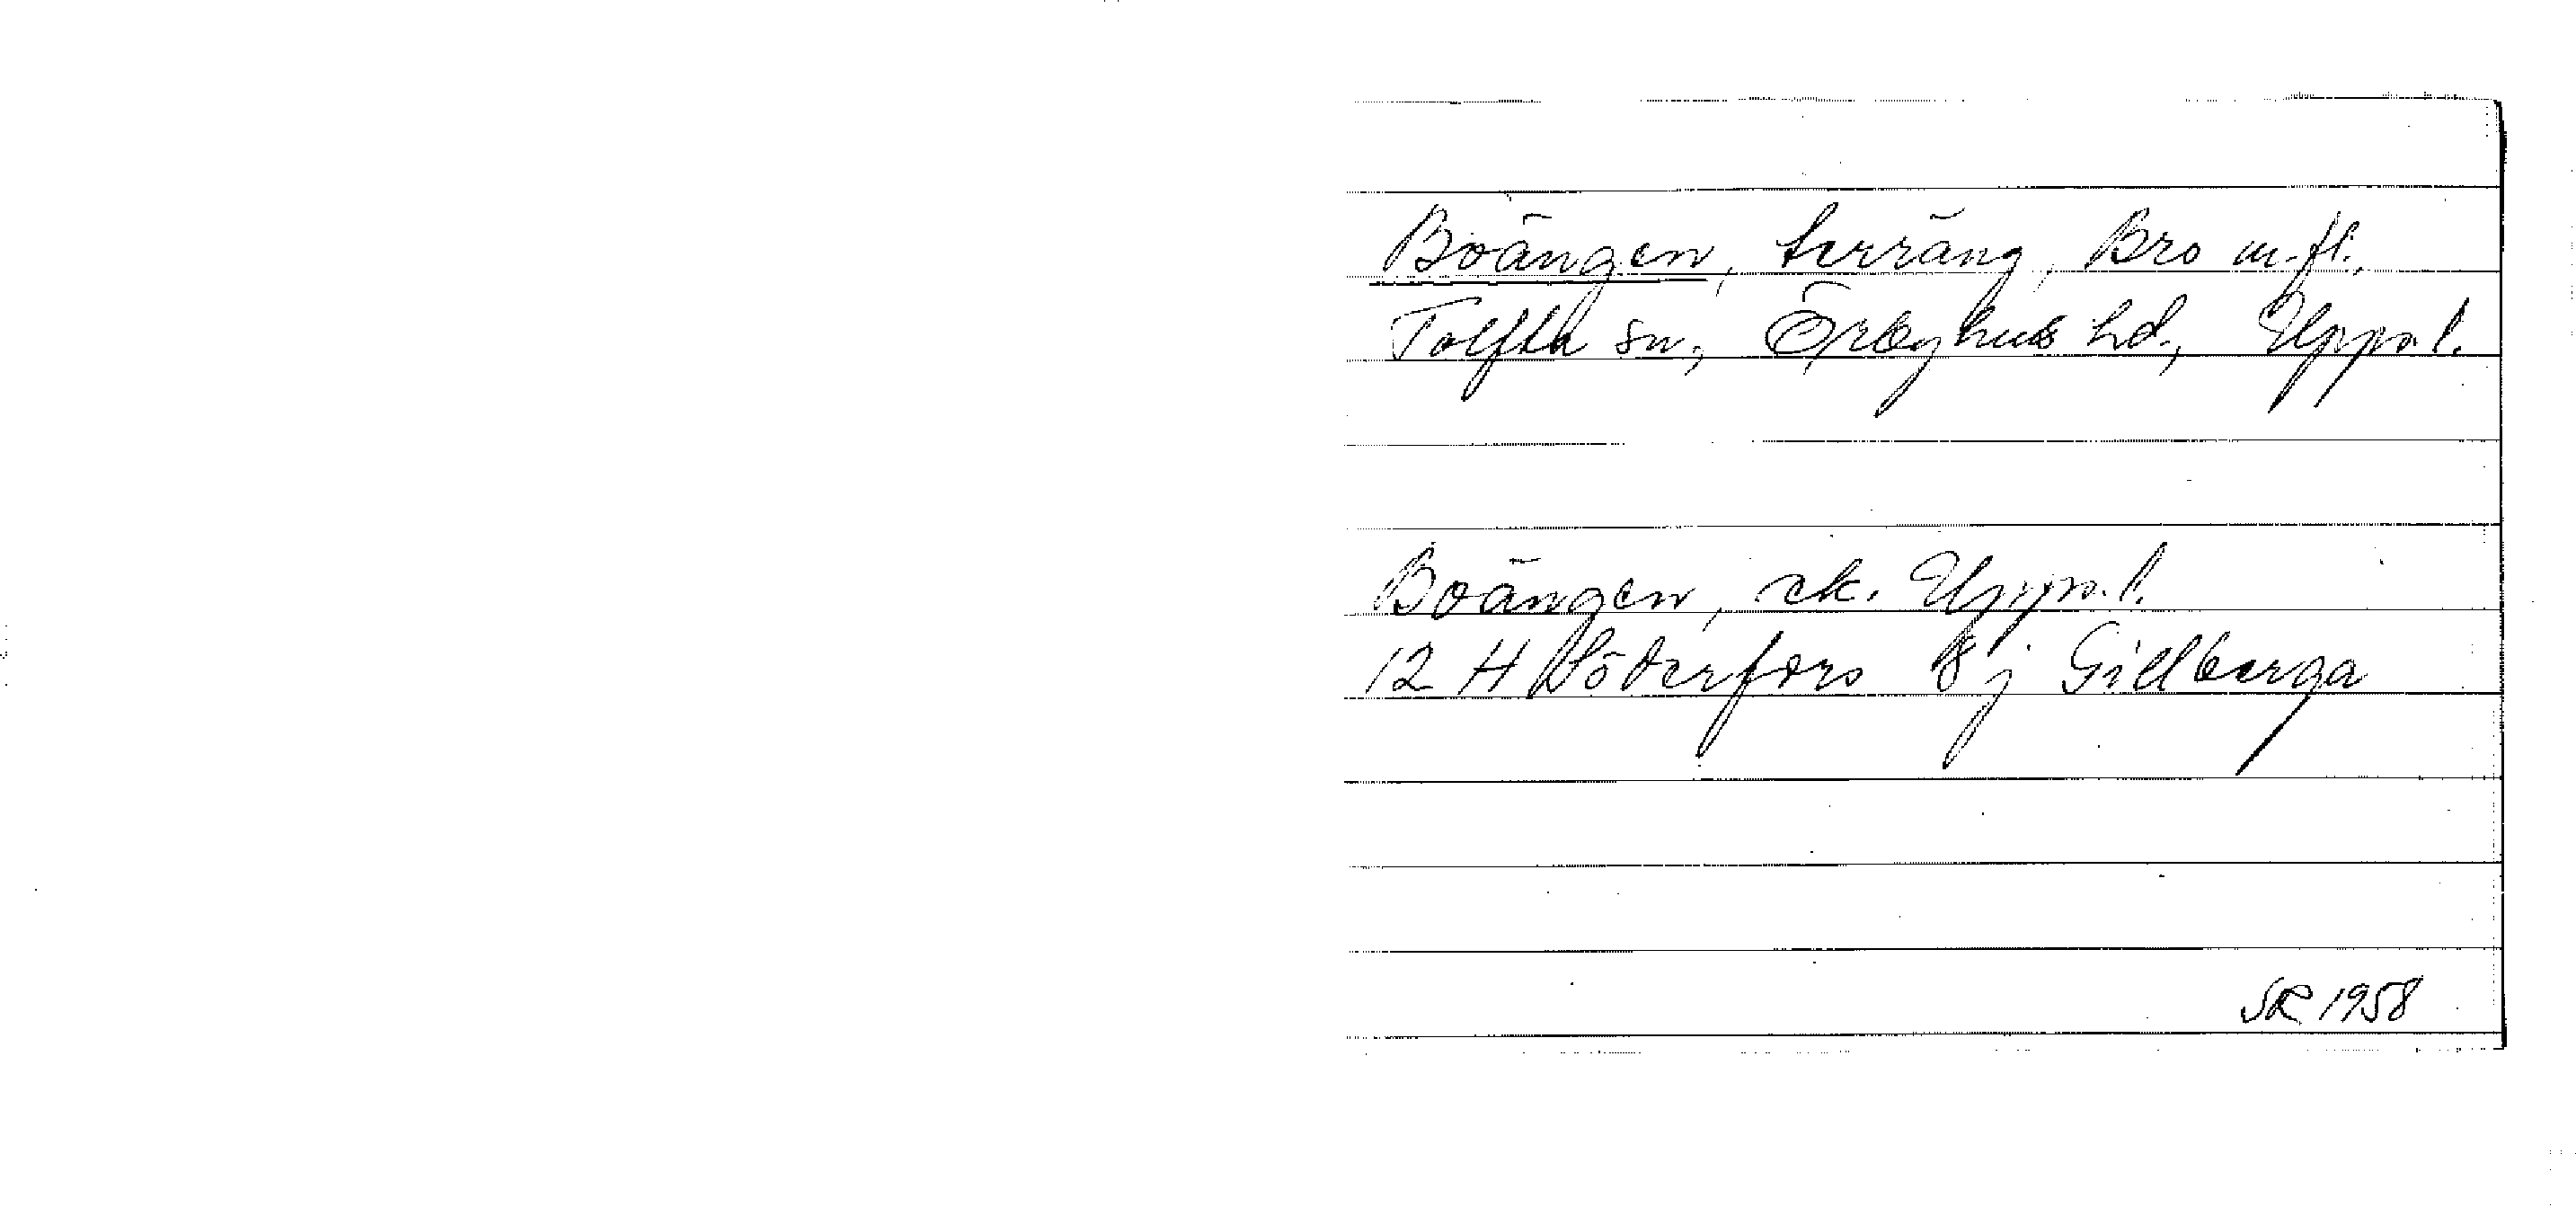 Boängen, terräng, Bro m.fl.,
Tolfta sn, Örbyhus hd, Upps. l.
Boängen, ek. Upps. l.
12 H Söderfors 8 j Gillberga
SR 1958